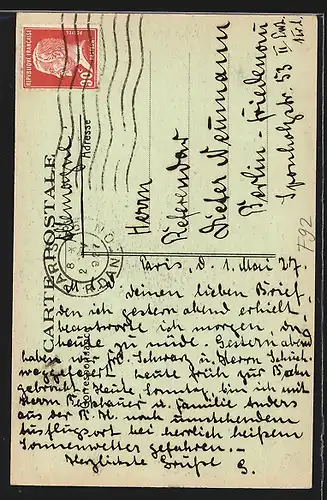 CARTE POSTALE
Adresse
Correspondance
REPUBLIQUE FRANÇAISE
POSTES
90c
PARIS
R. DANTON
2
1927
Allemagne
Herrn
Referendar
Dieter Neumann
Berlin-Friedenau
Sponholzstr. 53 II
F92
Paris, d. 1. Mai 27.
Deinen lieben Brief,
den ich gestern abend erhielt
beantworte ich morgen, da
heute zu müde. Gestern abend
haben wir Frd. Schwarz u. Herrn
weggefeiert, heute früh zur Bahn
gebracht. Heute, Sonntag, bin ich mit
Herrn u. Familie Anders
aus der nach umstehendem
Ausflugsort bei herrlich heißem
Sonnenwetter gefahren. –
Herzlichste Grüße! G.